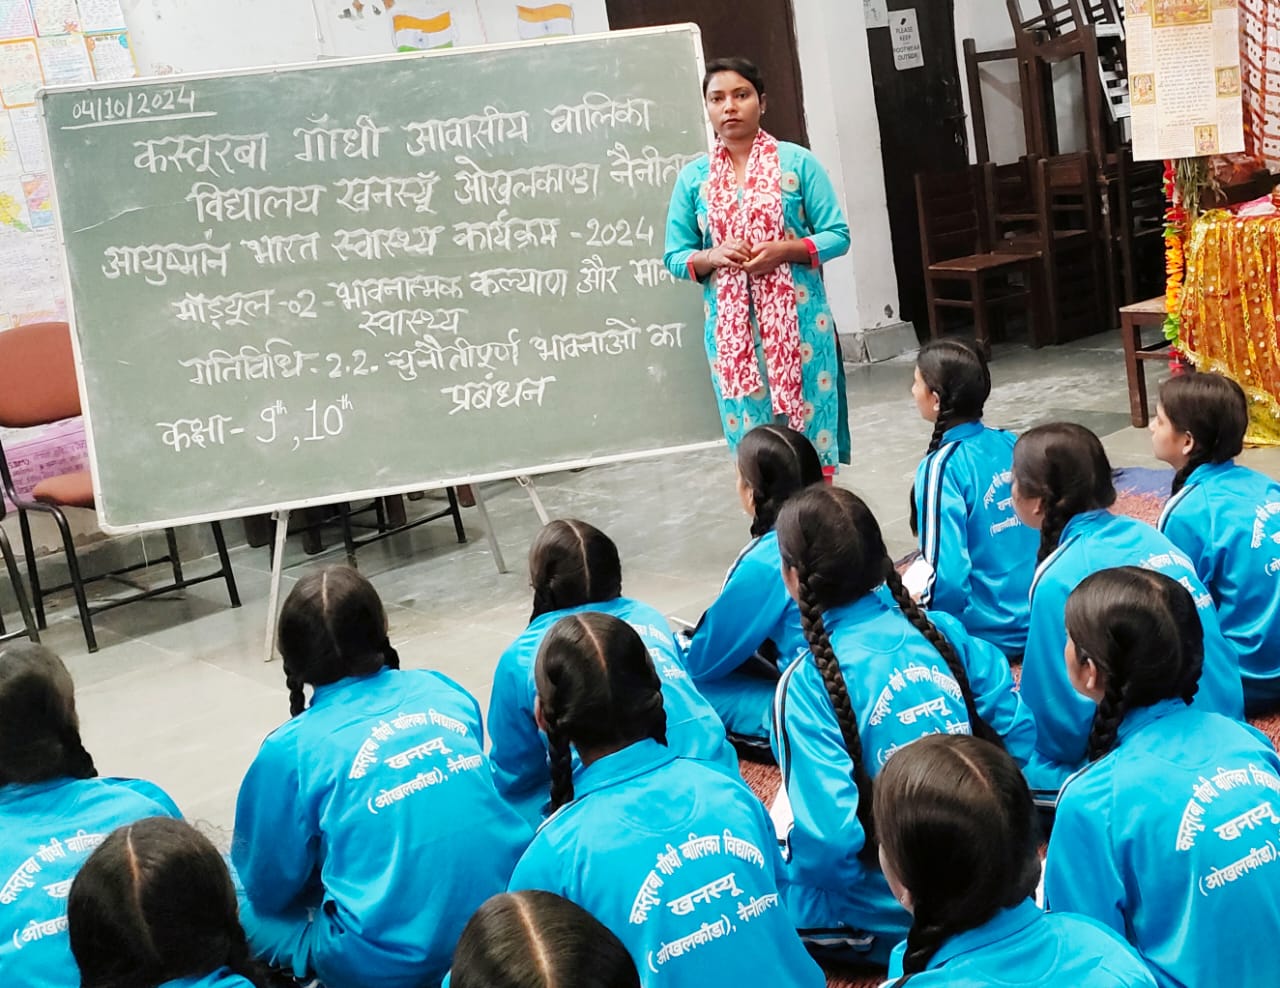 04/10/2024
कस्तूरबा गाँधी आवासीय बालिका
विद्यालय खनस्यूँ ओखलकाण्डा नैनीता
आयुष्मांन भारत स्वास्थ्य कार्यक्रम - 2024
मॉड्यूल - 02 - भावनात्मक कल्याण और मान
स्वास्थ्य
गतिविधि - 2.2. चुनौतीपूर्ण भावनाओं का
प्रबंधन
कक्षा - 9th, 10th
PLEASE
KEEP
FOOTWEAR
OUTSIDE
कस्तूरबा गाँधी बालिका विद्यालय
खनस्यू
(ओखलकाँडा), नैनीताल
कस्तूरबा गाँधी बालिका विद्यालय
खनस्यू
(ओखलकाँडा), नैनीताल
कस्तूरबा गाँधी बालिका विद्यालय
खनस्यू
कस्तूरबा गाँधी बालि
ख
(ओखल
कस्तूरबा गाँधी बालिका
खनस्यू
(ओखलकाँडा)